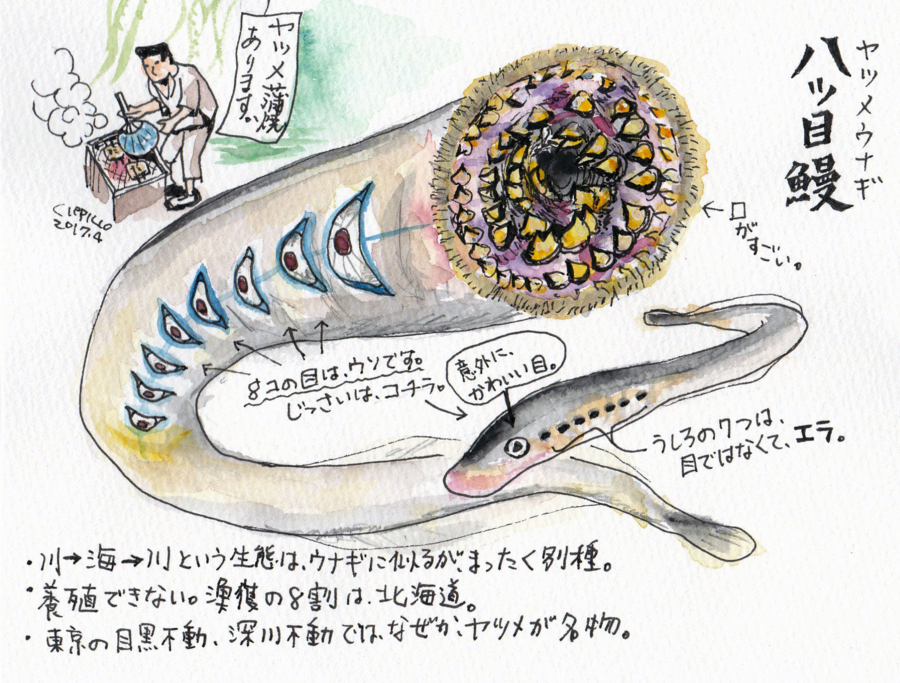 ヤツメウナギ
八ッ目鰻
ヤツメ蒲焼
あります。
CLEPICCO
2017.4
口
がすごい。
8コの目は、ウソです。
じっさいは、コチラ。
意外に、
かわいい目。
うしろの7つは、
目ではなくて、エラ。
・川→海→川という生態は、ウナギに似るが、まったく別種。
・養殖できない。漁獲の8割は、北海道。
・東京の目黒不動、深川不動では、なぜか、ヤツメが名物。